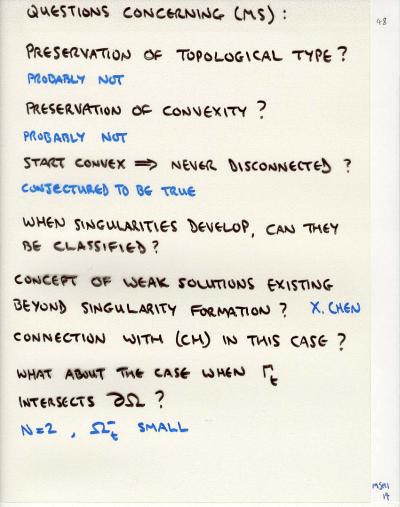 QUESTIONS CONCERNING (MS) :
48
PRESERVATION OF TOPOLOGICAL TYPE ?
PROBABLY NOT
PRESERVATION OF CONVEXITY ?
PROBABLY NOT
START CONVEX ⟹ NEVER DISCONNECTED ?
CONJECTURED TO BE TRUE
WHEN SINGULARITIES DEVELOP, CAN THEY
BE CLASSIFIED ?
CONCEPT OF WEAK SOLUTIONS EXISTING
BEYOND SINGULARITY FORMATION ? X. CHEN
CONNECTION WITH (CH) IN THIS CASE ?
WHAT ABOUT THE CASE WHEN Γt
INTERSECTS ∂Ω ?
N=2 , Ω⁻t SMALL
MSRI
14